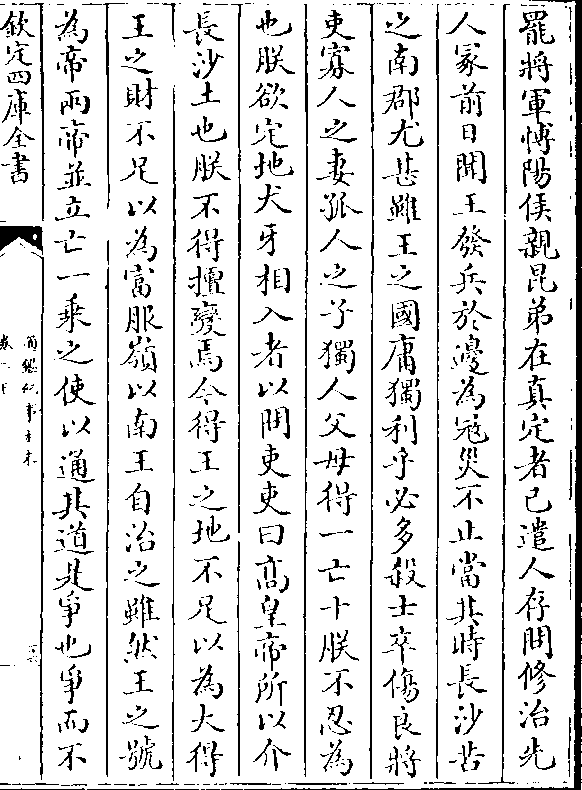 罷將軍博陽侯親昆弟在真定者已遣人存問修治先
人冢前日聞王發兵於邊為寇災不止當其時長沙苦
之南郡尤甚雖王之國庸獨利乎必多殺士卒傷良將
吏寡人之妻孤人之子獨人父母得一亡十朕不忍為
也朕欲定地犬牙相入者以問吏吏曰高皇帝所以介
長沙土也朕不得擅變焉今得王之地不足以為大得
王之財不足以為富服嶺以南王自治之雖然王之號
為帝兩帝並立亡一乘之使以通其道是爭也爭而不
欽定四庫全書
通鑑紀事本末